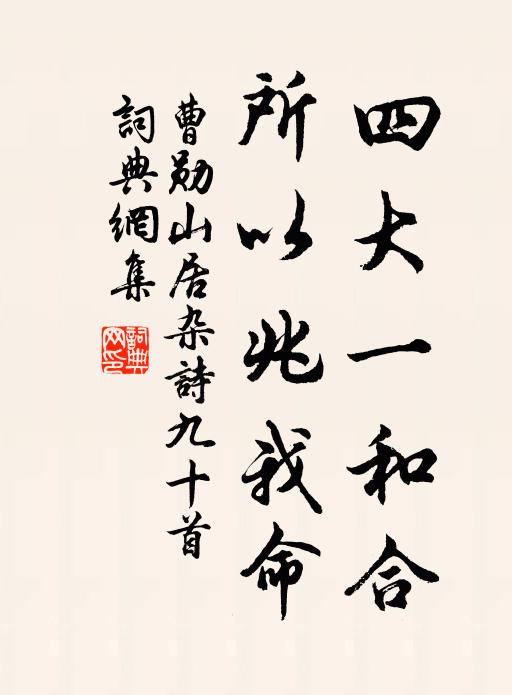 四大一和合
所以兆我命
曹勋山居杂詩九十首
詞典網集
詞典网印